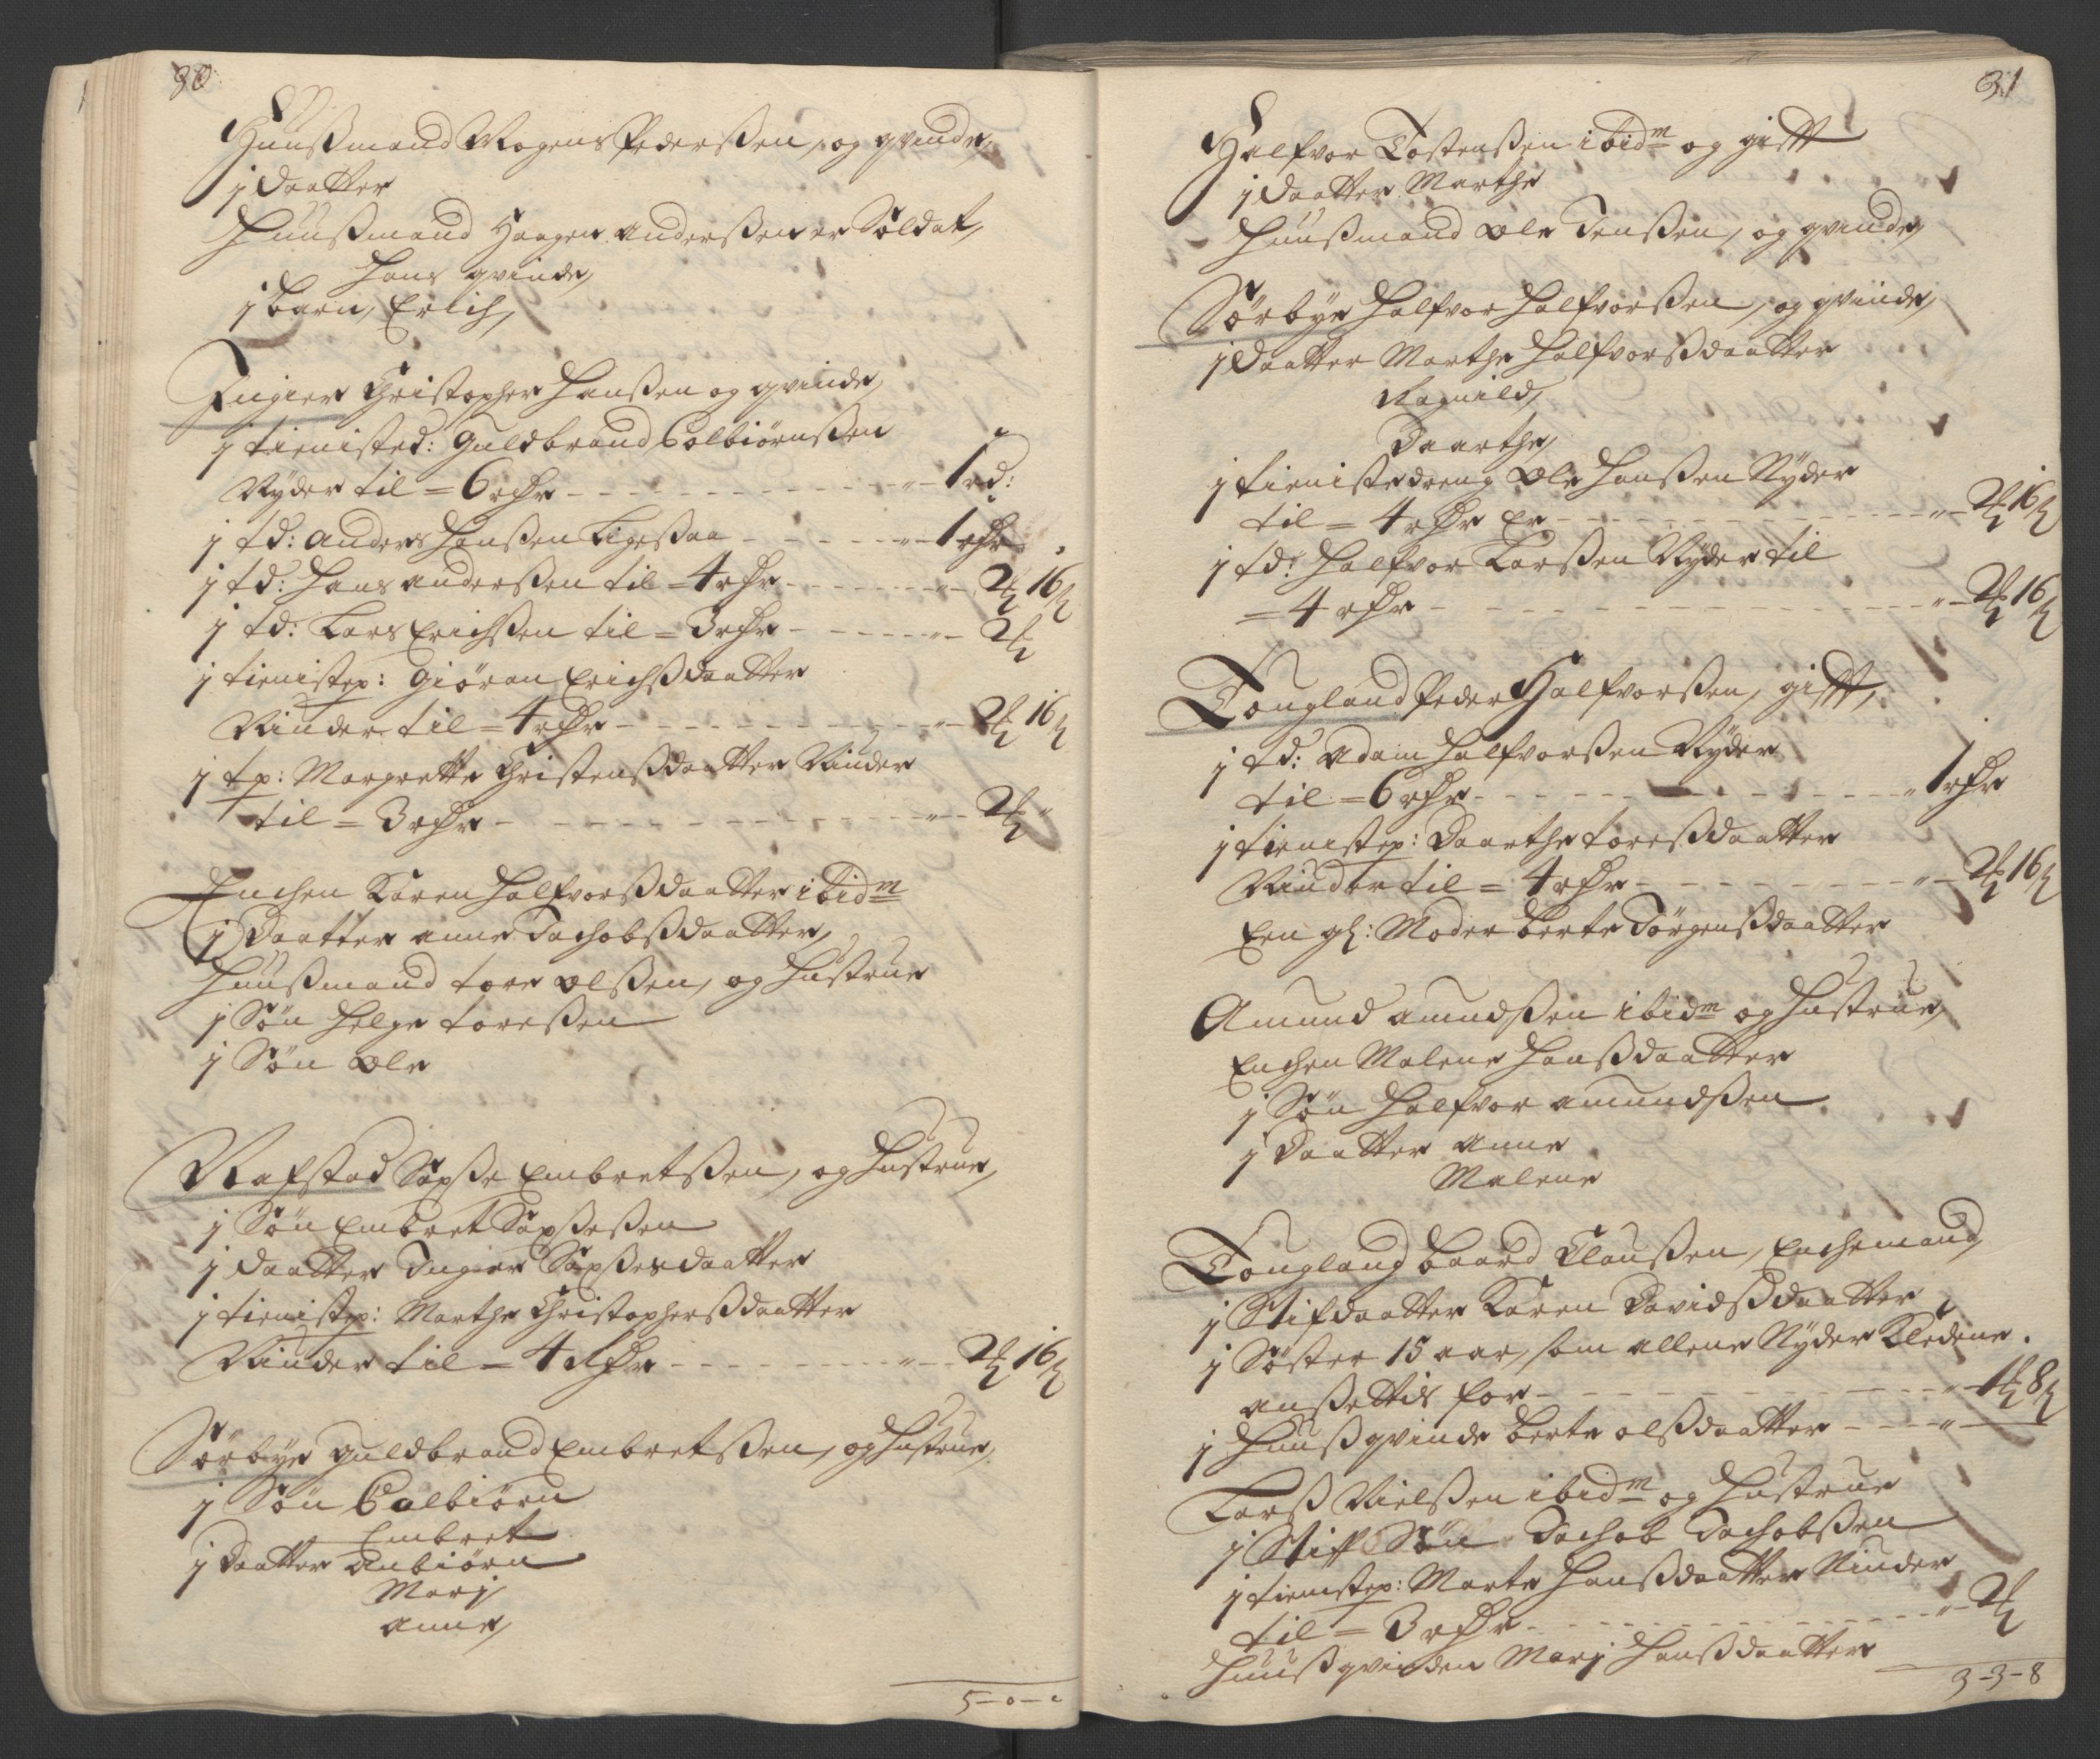 30
Huußmand Mogens Pederßen, og qvinde,
j Daatter
Huußmand Haagen Anderßen er Soldat,
Hans qvinde,
j barn, Erlich,
Engier Christopher Hanßen og qvinde,
j tienisted: Guldbrand Colbiørnßen
Nyder til = 6 rdr - - - 1 rd:
j td: Anders Hanßen Ligeßaa - - - 1 rdr
j td: Hans Anderßen til = 4 rdr - - - 2 16
j td: Lars Erichßen til = 3 rdr - - - 2
j tienistep: Giøran Erichßdaatter
Niuder til = 4 rdr - - - 2 16
j tp: Margrette Christenßdaatter Niuder
til = 3 rdr - - - 2
Enchen Karen Halfvorßdaatter ibidm
j Daatter Anne Jachobßdaatter,
Huußmand tore Olßen, og Hustrue
j Søn Helge toreßen
j Søn Ole
Nafstad Søpße Embretßen, og Hustrue,
j Søn Embret Søpßeßen
j daatter Ingier Søpßesdaatter
j tienistep: Marthe Christopherßdaatter
Niuder til = 4 rdr - - - 2 16
Sørbye Guldbrand Embretßen, og Hustrue,
j Søn Colbiørn
Embret
j daatter Anbiørn
Marj
Anne,
5 - 0 - 0
31
Halfvor Tostenßen ibidm og gifft
j Daatter Marthe
Huußmand Ole Jenßen, og qvinde,
Sørbye Halfvor Halfvorßen, og qvinde,
j Daatter Marthe Halfvorßdaatter
Ragnild,
Daarthe,
j tienistedreng Ole Hanßen Nyder
til = 4 rdr Er - - - 2 16
j td: Halfvor Larßen Nyder til
= 4 rdr - - - 2 16
Tougland Peder Halfvorßen, gifft,
j td: Adam Halfvorßen Nyder
til = 6 rdr - - - 1 rdr
j tienistep: Daarthe toreßdaatter
Niuder til = 4 rdr - - - 2 16
Een gl: Moder Berte Jørgenßdaatter
Amund Amundßen ibidm og Hustrue,
Enchen Malene Hanßdaatter
j Søn Halfvor Amundßen
j Daatter Anne
Malene
Tougland Baard Claußen, Enchemand,
j Stifdaatter Karen Davidßdaatter
j Søster 15 aar, som allene Nyder Klederne.
anßettis for - - - 1 8
j Huußqvinde Berte Olßdaatter - - -
Larß Nielßen ibidm og Hustrue
j Stiff Søn Jachob Jachobßen
j tienistep: Marte Hanßdaatter Niuder
til = 3 rdr - - - 2
Huußqvinden Marj Hanßdaatter
3 - 3 - 8